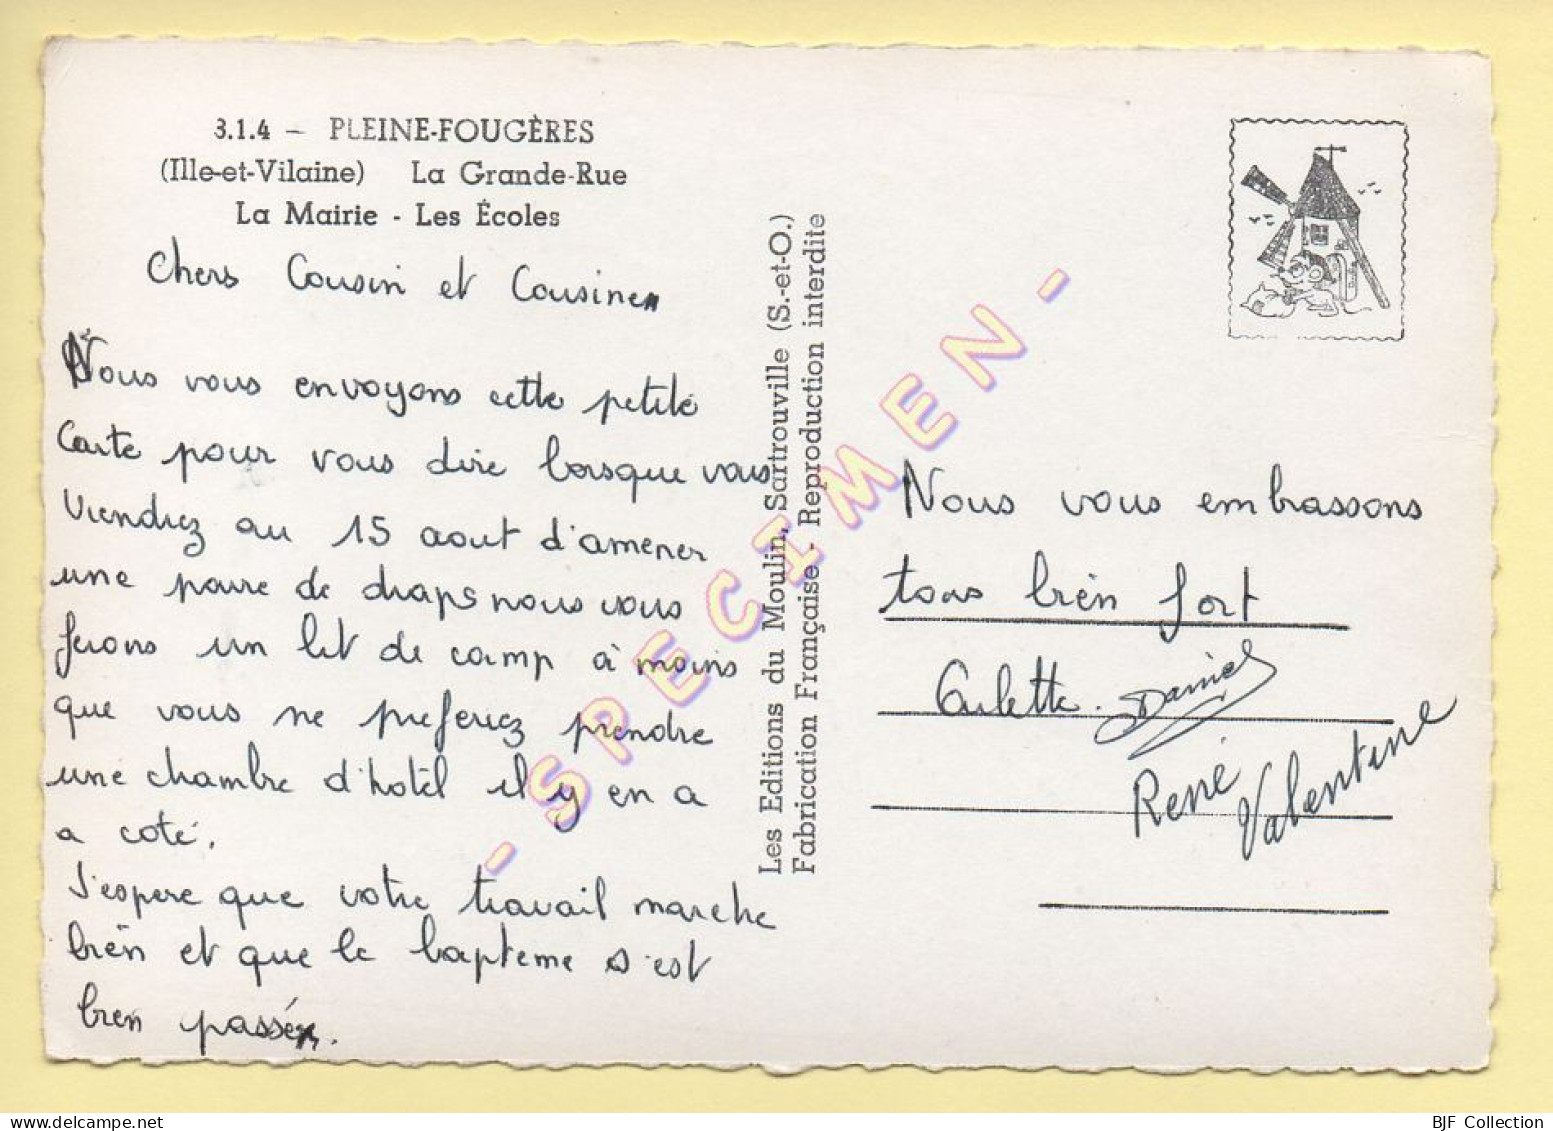 3.1.4 – PLEINE-FOUGÈRES
(Ille-et-Vilaine) La Grande-Rue
La Mairie - Les Écoles
Chers Cousin et Cousine
Nous vous envoyons cette petite
carte pour vous dire lorsque vous
viendrez au 15 aout d'amener
une paire de draps nous vous
ferons un lit de camp à moins
que vous ne preferiez prendre
une chambre d'hotel il y en a
a coté.
J'espere que votre travail marche
bien et que le bapteme s'est
bien passé.
Les Editions du Moulin, Sartrouville (S.-et-O.)
Fabrication Française - Reproduction interdite
- SPECIMEN -
Nous vous embrassons
tous bien fort
Arlette. Daniel
René Valentine
BJF Collection